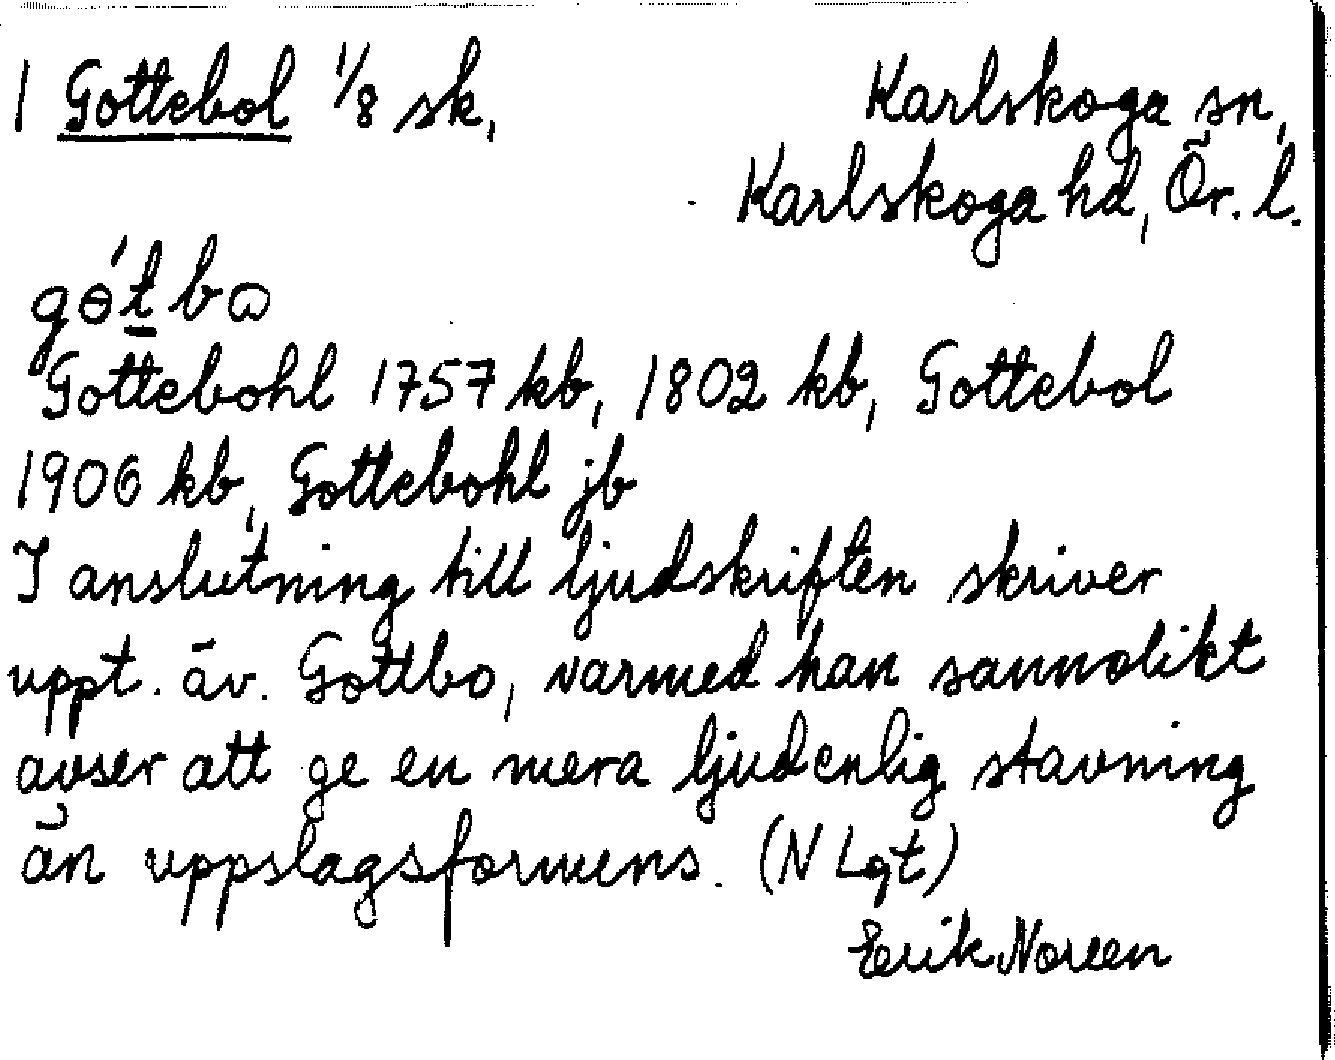 1 Gottebol 1/8 sk, Karlskoga sn,
Karlskoga hd, Ör. l.
gɵ́t̲bɷ
Gottebohl 1757 kb, 1802 kb, Gottebol
1906 kb, Gottebohl jb
I anslutning till ljudskriften skriver
uppt. äv. Gottbo, varmed han sannolikt
avser att ge en mera ljudenlig stavning
än uppslagsformens. (N Lgt)
Erik Noreen